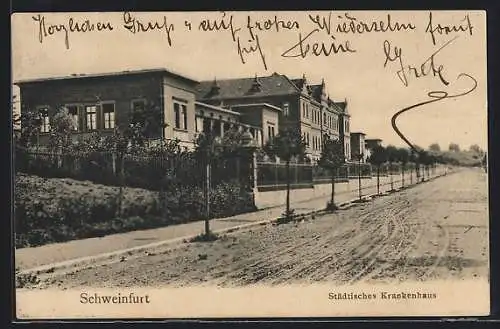 Herzlichen Gruß u. auf frohes Wiedersehn
für
Grete
Schweinfurt
Städtisches Krankenhaus